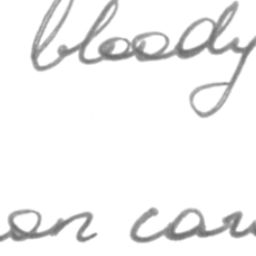 bloody
on car